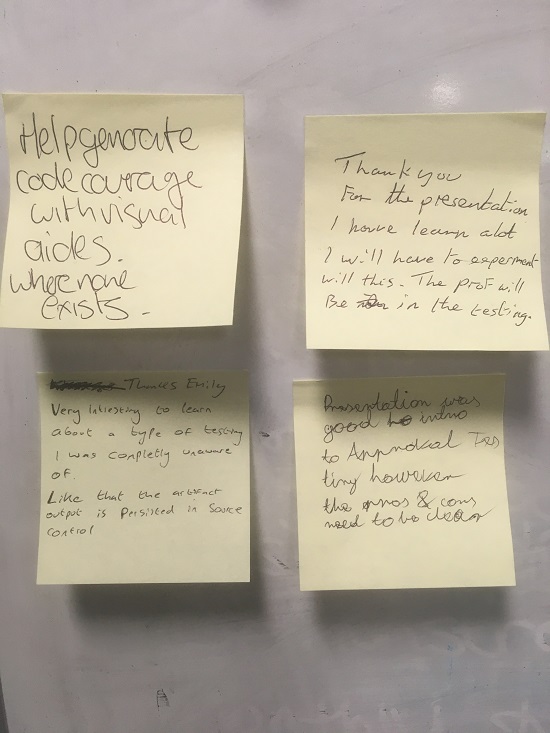 Help generate
code courage
with visual
aides.
where none
exists.
Thank you
For the presentation
I have learn alot
I will have to experment
will this. The prof will
Be in the testing.
Thanks Emily
Very Intresting to learn
about a type of testing
I was completly unaware
of.
Like that the artifact
output is Persisted in Source
Control
Presentation was
good intro
to Approval Tes
ting however
the pros & cons
need to be clear